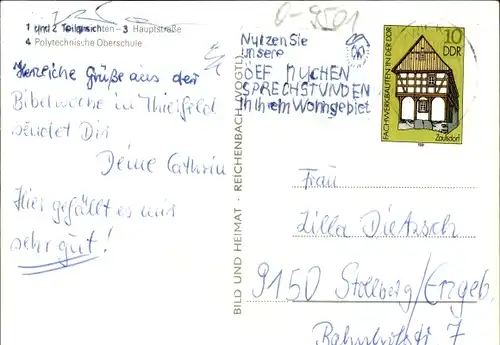 O-9501
1 und 2 Teilansichten - 3 Hauptstraße
4 Polytechnische Oberschule
Herzliche Grüße aus der
Bibelwoche in Thierfeld
sendet Dir
Deine Cathrin
Hier gefällt es mir
sehr gut!
BILD UND HEIMAT · REICHENBACH (VOGTL)
Nutzen Sie
unsere
SPRECHSTUNDEN
in Ihrem Wohngebiet
10
DDR
FACHWERKBAUTEN IN DER DDR
Zaulsdorf
Frau
Zilla Dietzsch
9150 Stollberg/Erzgeb.
Bahnhofstr. 7